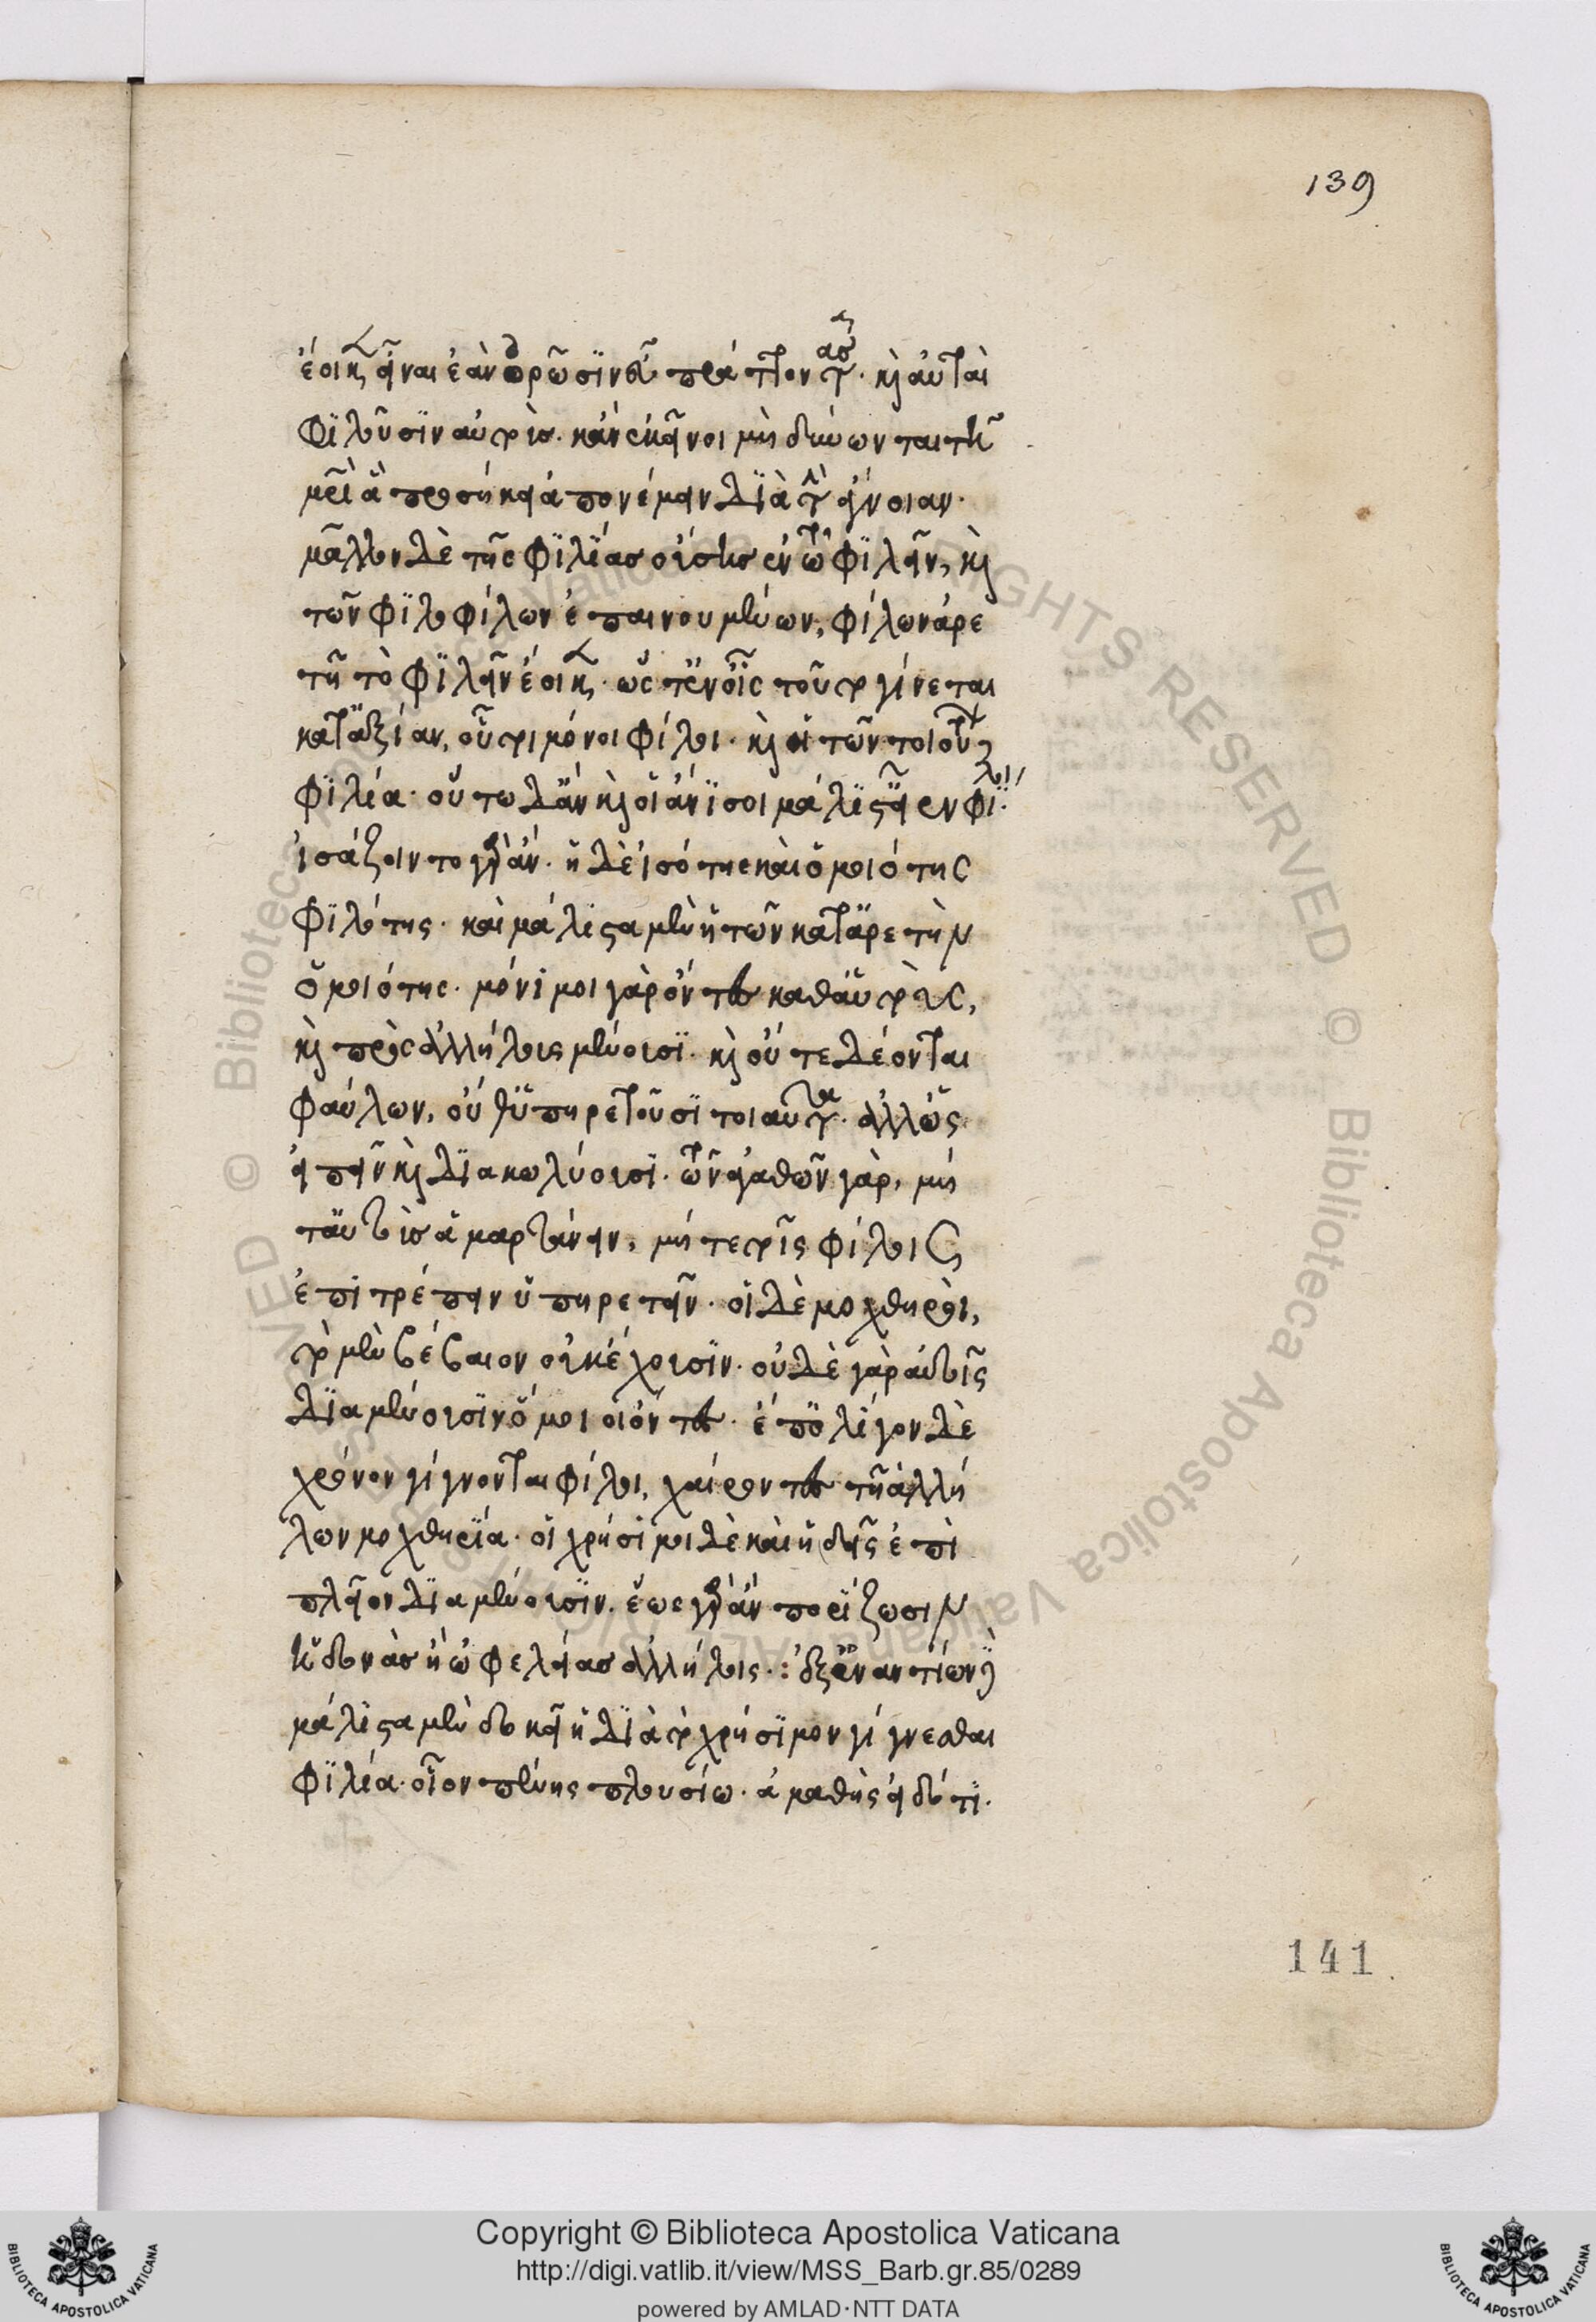 139
ἔοικεν εἶναι ἐὰν ὁρῶσιν εὖ πράττοντας. καὶ αὐταὶ
φιλοῦσιν αὐτούς. κἂν ἐκεῖνοι μηδὲν ὧν τῇ
μητρὶ ἃ προσήκει ἀπονέμειν διὰ τὴν ἄγνοιαν.
μᾶλλον δὲ τῆς φιλίας οὔσης ἐν τῷ φιλεῖν, καὶ
τῶν φιλοφίλων ἐπαινουμένων, φίλων ἀρε
τῇ τὸ φιλεῖν ἔοικεν. ὥστ' ἐν οἷς τοῦτο γίνεται
κατ' ἀξίαν, οὗτοι μόνιμοι φίλοι. καὶ ἡ τῶν τοιούτων
φιλία. οὕτω δ' ἂν καὶ οἱ ἄνισοι μάλιστ' εἶεν φίλοι.
ἰσάζοιντο γὰρ ἄν. ἡ δὲ ἰσότης καὶ ὁμοιότης
φιλότης. καὶ μάλιστα μὲν ἡ τῶν κατ' ἀρετὴν
ὁμοιότης. μόνιμοι γὰρ ὄντες καθ' αὑτοὺς,
καὶ πρὸς ἀλλήλους μένουσι. καὶ οὔτε δέονται
φαύλων, οὔθ' ὑπηρετοῦσι τοιαῦτα. ἀλλ' ὡς
εἰπεῖν καὶ διακωλύουσι. τῶν ἀγαθῶν γὰρ, μήτ'
αὐτοὺς ἁμαρτάνειν, μήτε τοῖς φίλοις
ἐπιτρέπειν ὑπηρετεῖν. οἱ δὲ μοχθηροὶ,
τὸ μὲν βέβαιον οὐκ ἔχουσιν. οὐδὲ γὰρ αὑτοῖς
διαμένουσιν ὅμοιοι ὄντες. ἐπ' ὀλίγον δὲ
χρόνον γίγνονται φίλοι, χαίροντες τῇ ἀλλή
λων μοχθηρίᾳ. οἱ χρήσιμοι δὲ καὶ ἡδεῖς ἐπὶ
πλεῖον διαμένουσιν. ἕως γὰρ ἂν πορίζωσιν
ἡδονὰς ἢ ὠφελείας ἀλλήλοις: ἐξ ἐναντίων δὲ
μάλιστα μὲν δοκεῖ ἡ διὰ τὸ χρήσιμον γίγνεσθαι
φιλία. οἷον πένης πλουσίῳ. ἀμαθὴς εἰδότι.
141
Copyright © Biblioteca Apostolica Vaticana
http://digi.vatlib.it/view/MSS_Barb.gr.85/0289
powered by AMLAD·NTT DATA